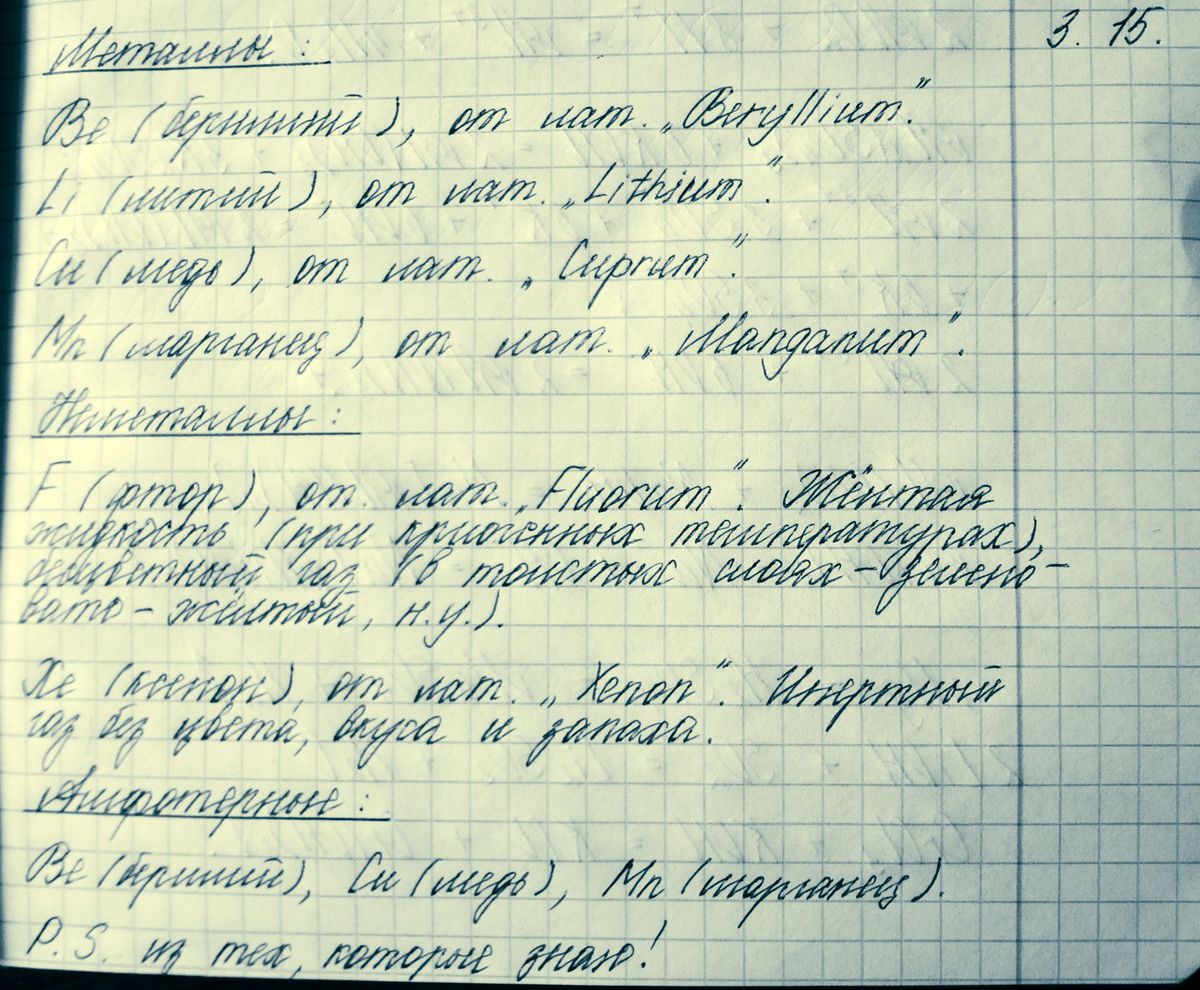 3. 15.
Металлы:
Be (бериллий), от лат. „Beryllium".
Li (литий), от лат. „Lithium".
Cu (медь), от лат. „Cuprum".
Mn (марганец), от лат. „Manganum".
Неметаллы:
F (фтор), от. лат. „Fluorum". Жёлтая
жидкость (при криогенных температурах),
бесцветный газ (в толстых слоях – зелено-
вато – жёлтый, н.у.).
Xe (ксенон), от лат. „Xenon". Инертный
газ без цвета, вкуса и запаха.
Амфотерные:
Be (бериллий), Cu (медь), Mn (марганец).
P. S. из тех, которые знаю!